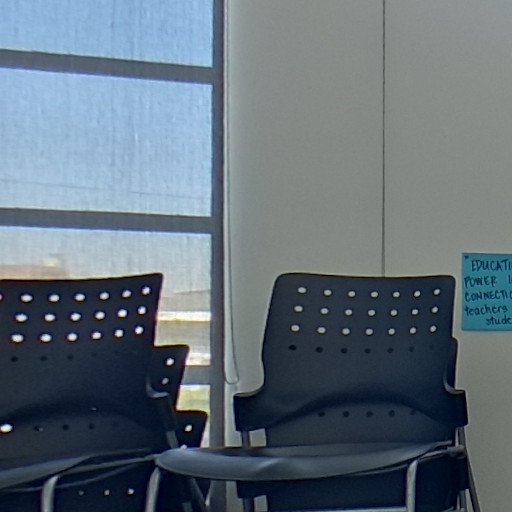 EDUCATI
POWER I
CONNECTIO
teachers
stude